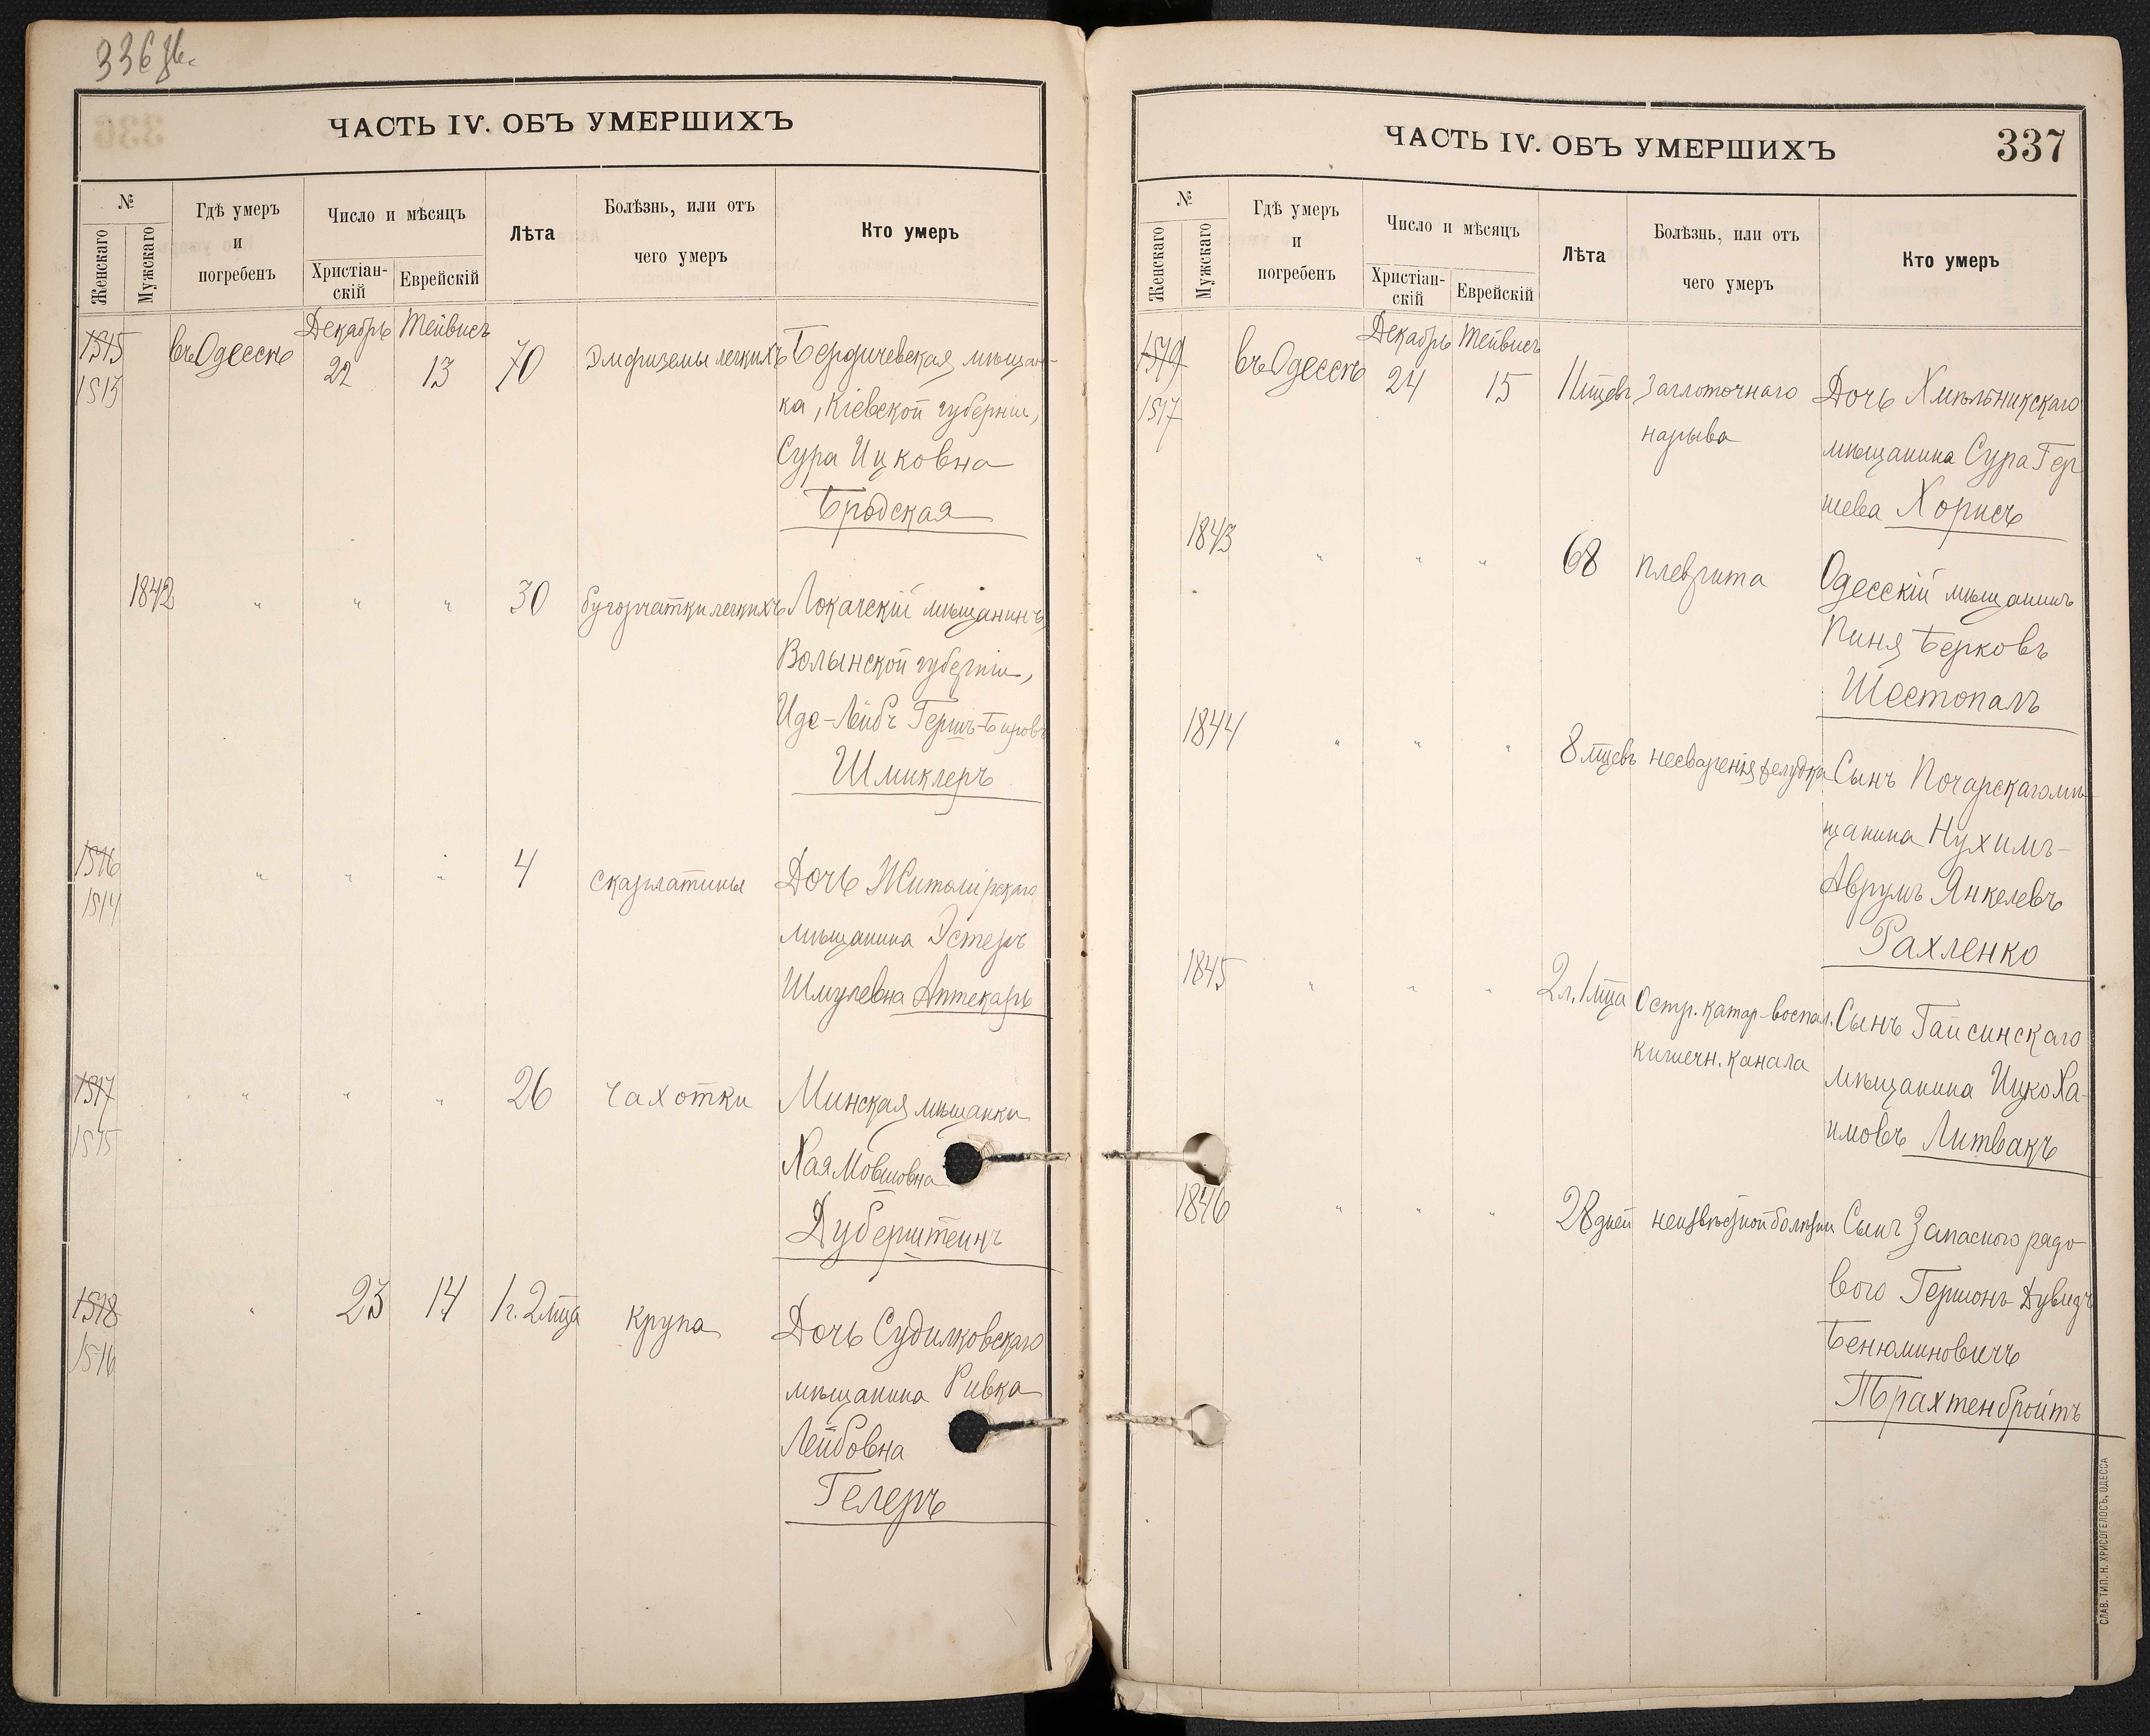 336 Об.
ЧАСТЬ IV. ОБЪ УМЕРШИХЪ
№
Женскаго
Мужскаго
Гдѣ умеръ
и
погребенъ
Число и мѣсяцъ
Христіан-
скій
Еврейскій
Лѣта
Болѣзнь, или отъ
чего умеръ
Кто умеръ
Декабрь Тейвисъ
1515 въ Одессѣ 22 13 70 Эмфиземы легкихъ Бердичевская мѣщан-
1513
ка, Кіевской губерніи,
Сура Ицковна
Бродская
1842 " " " 30 бугорчатки легкихъ Локачскій мѣщанинъ,
Волынской губерніи,
Иде-Лейбъ Гершъ-Беровъ
Шмиклеръ
1516 " " " 4 скарлатины Дочь Житомірскаго
1514
мѣщанина Эстеръ
Шмулевна Аптекарь
1517 " " " 26 чахотки Минская мѣщанка
1515
Хая Мовшовна
Дуберштеинъ
1518 " 23 14 1 г. 2 мца крупа Дочь Судилковскаго
1516
мѣщанина Ривка
Лейбовна
Гелеръ
ЧАСТЬ IV. ОБЪ УМЕРШИХЪ
337
№
Женскаго
Мужскаго
Гдѣ умеръ
и
погребенъ
Число и мѣсяцъ
Христіан-
скій
Еврейскій
Лѣта
Болѣзнь, или отъ
чего умеръ
Кто умеръ
Декабрь Тейвисъ
1519 въ Одессѣ 24 15 11 мцевъ Заглоточнаго Дочь Хмѣльникскаго
1517 нарыва
мѣщанина Сура Гер
шева Хорисъ
1843 " " " 68 плеврита Одесскій мѣщанинъ
Пиня Берковъ
Шестопалъ
1844 " " " 8 мцевъ несваренія желудка Сынъ Почарскаго мѣ-
щанина Нухимъ-
Аврумъ Янкелевъ
Рахленко
1845 " " " 2 л. 1 мца Остр. катар-воспал. Сынъ Гайсинскаго
кишечн. канала
мѣщанина Ицко Ха-
имовъ Литвакъ
1846 " " " 28 дней неизвѣстной болѣзни Сынъ Запасного рядо-
вого Гершонъ Дувидъ
Бенюминовичъ
Трахтенбройтъ
СЛАВ. ТИП. Н. ХРИСОГЕЛОСЪ, ОДЕССА